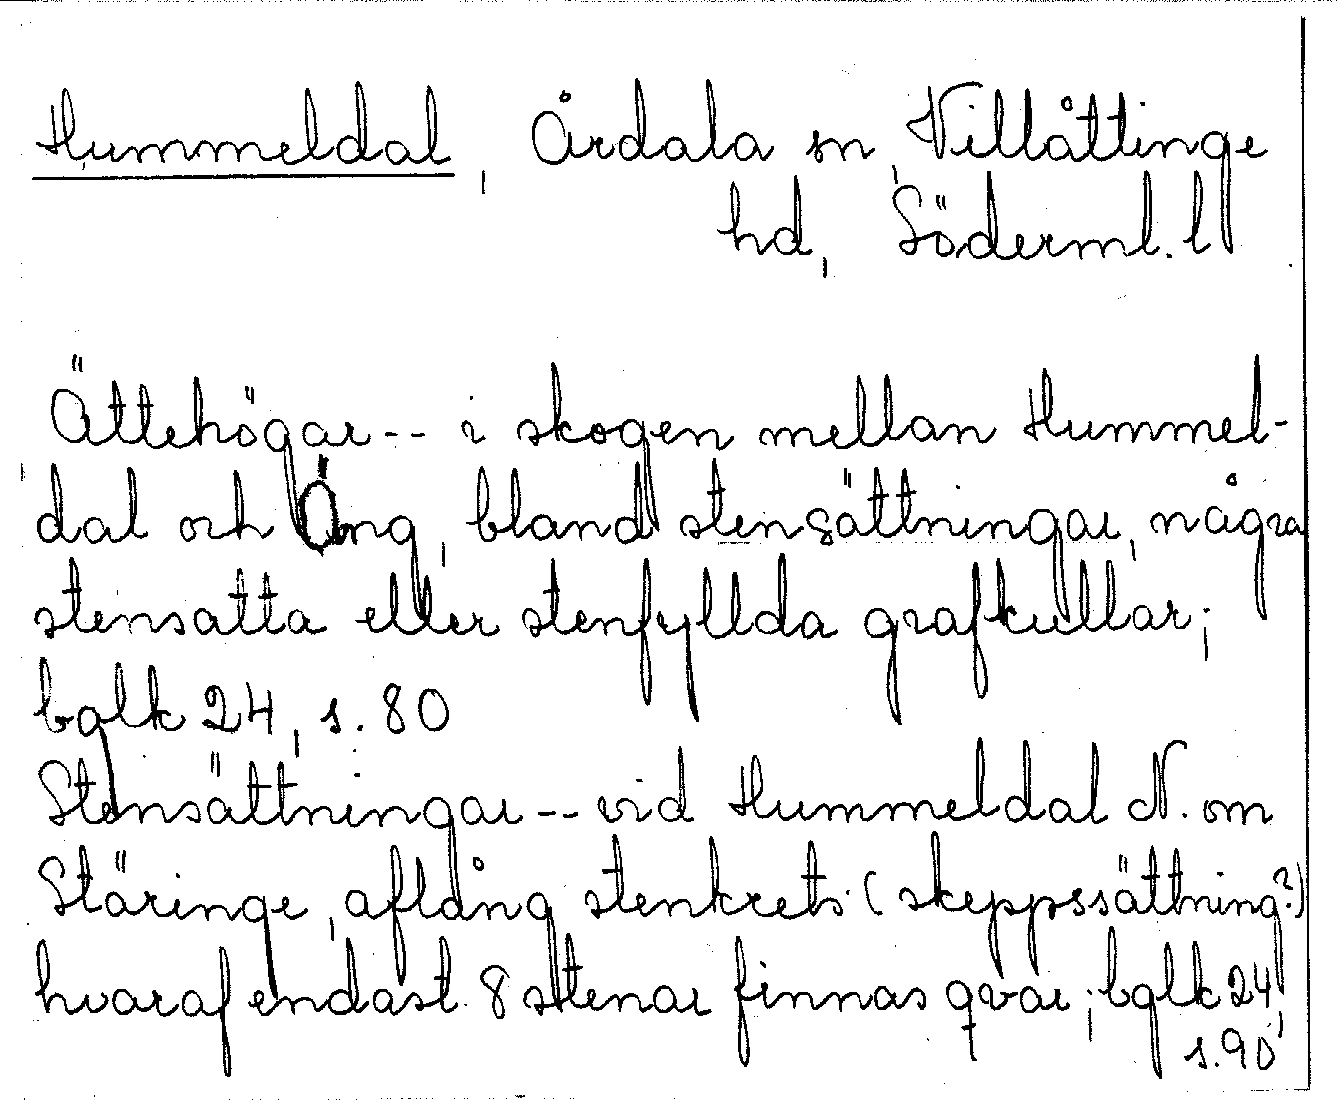 Hummeldal, Årdala sn, Villåttinge
hd, Söderml. l
Ättehögar -- i skogen mellan Hummel-
dal och Äng, bland stensättningar, några
stensatta eller stenfyllda grafkullar;
bglk 24, s. 80
Stensättningar -- vid Hummeldal N. om
Stäringe, aflång stenkrets (skeppssättning?)
hvaraf endast 8 stenar finnas qvar; bglk 24,
s. 90